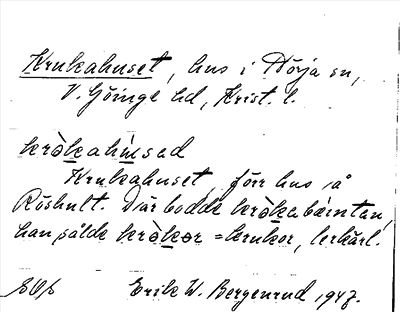 Krukahuset, hus i Nörja sn,
V. Göinge hd, Krist. l.
kròkahúsed
Krukahuset, förr hus på
Röshult. Där bodde kròkabärntan,
han sålde kròkor = krukor, lerkärl.
Erik W. Borgenrud 1947.